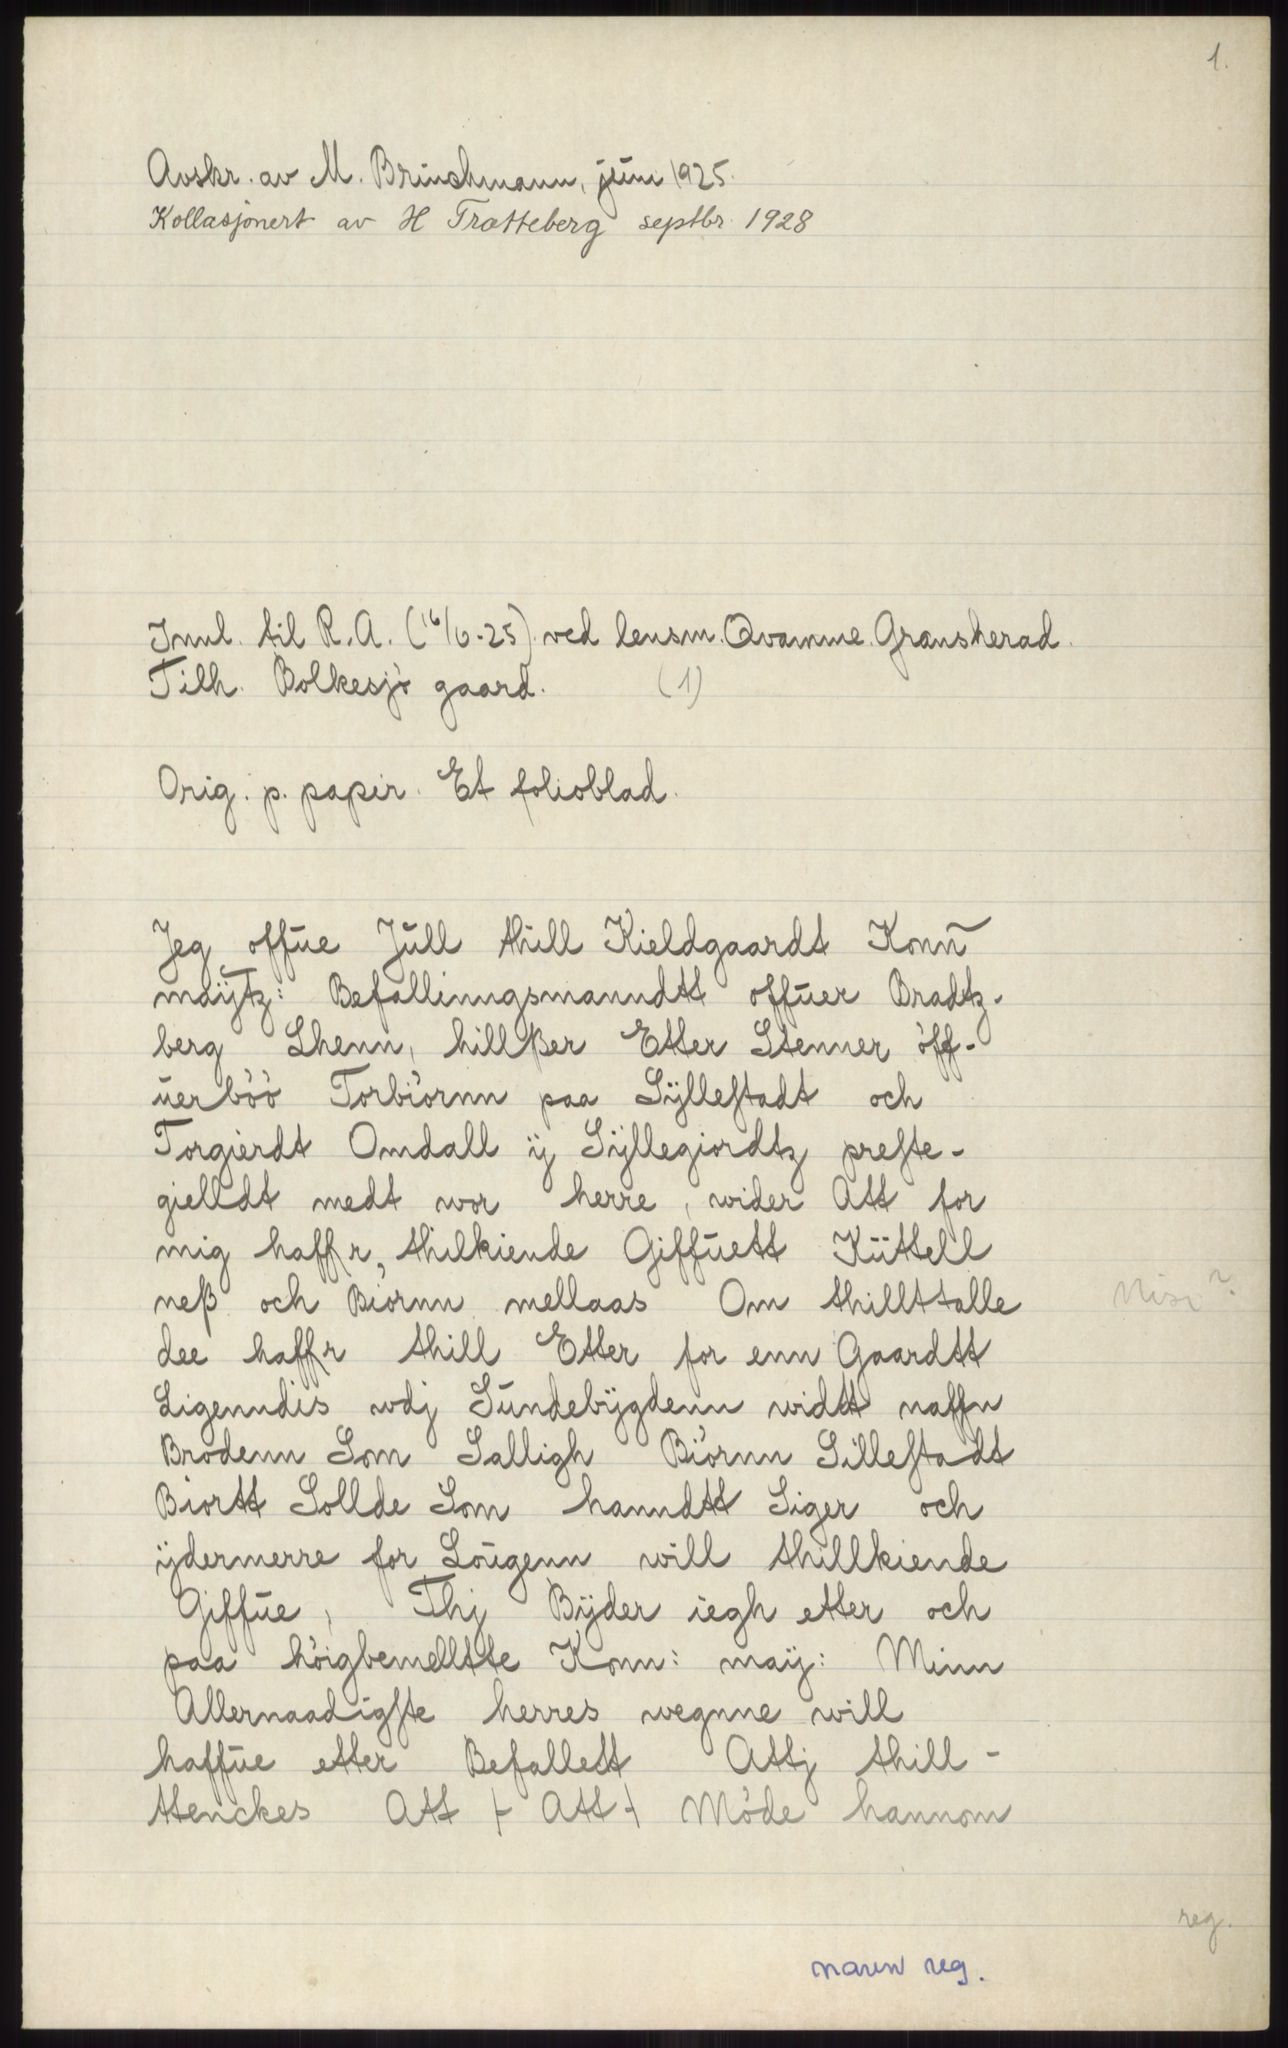 1.
Avskr. av M. Brinchmann, juni 1925.
Kollasjonert av H Trætteberg septbr. 1928
Innl. til R.A. (16/6-25) ved lensm. Qvamme. Gransherad.
Tilh. Bolkesjö gaard. (1)
Orig. p. papir. Et folioblad.
Jeg offue Jull thill Kieldgaardt Konn
maytz: Befallinngsmanndtt offuer Bradtz-
berg Lhenn, hillßer Etter Stenner öff-
uerböö Torbiörnn paa Syllestadt och
Torgierdt Omdall y Syllegiordtz preste-
gielldt medt wor herre, wider Att for
mig haffr, thilkiende Giffuett Küttell
neß och Biornn mellaas Om thillttalle
Nise?
dee haffr thill Etter for enn Gaardtt
Ligenndis wdj Sundebygdenn widtt naffn
Brodenn Som Salligh Biörnn Sillestadt
Biortt Sollde Som hanndtt Siger och
ydermerre for Lougenn will thillkiende
Giffue, Thj Byder iegh etter och
paa höigbemelltte Konn: may: Minn
Allernaadigste herres wegnne will
haffue etter Befallett Attj thill-
ttenckes Att + Att + Möde hannom
reg.
navn reg.